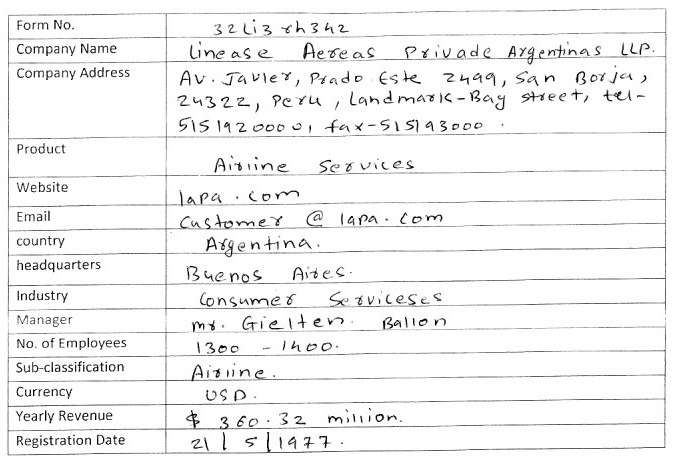 Form No. 32Li3rh342
Company Name Linease Aereas Privade Argentinas LLP.
Company Address Av. Javier, Prado Este 2499, San Borja,
24322, Peru, Landmark-Bay street, tel-
5151920000, fax-515193000.
Product Airline Services
Website lapa.com
Email Customer @ lapa.com
country Argentina.
headquarters Buenos Aires.
Industry Consumer Serviceses
Manager mr. Gielten Ballon
No. of Employees 1300 - 1400.
Sub-classification Airline.
Currency USD.
Yearly Revenue $ 360.32 million.
Registration Date 21 | 5 | 1977.